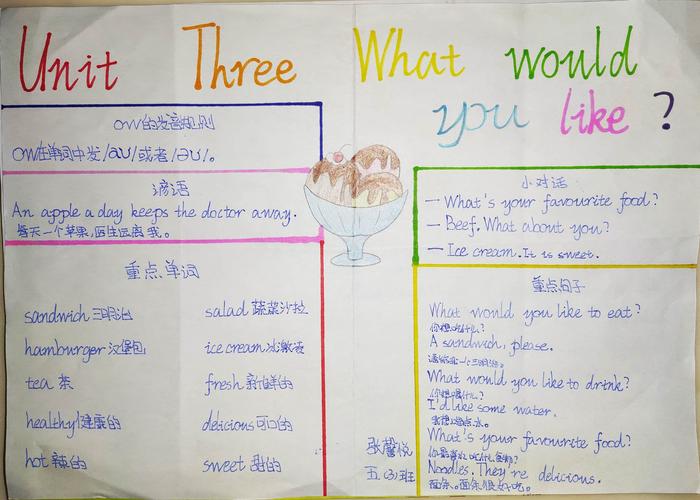 Unit Three What would
you like ?
ow的发音规则
ow在单词中发/aʊ/或者/əʊ/。
谚语
An apple a day keeps the doctor away.
每天一个苹果,医生远离我。
重点单词
sandwich 三明治
salad 蔬菜沙拉
hamburger 汉堡包
ice cream 冰激凌
tea 茶
fresh 新鲜的
healthy 健康的
delicious 可口的
hot 辣的
sweet 甜的
小对话
— What's your favourite food?
— Beef. What about you?
— Ice cream. It is sweet.
重点句子
What would you like to eat?
你想吃什么?
A sandwich, please.
请给我一个三明治。
What would you like to drink?
你想喝什么?
I'd like some water.
我想喝点水。
What's your favourite food?
你最喜欢吃什么食物?
Noodles. They're delicious.
面条。面条很好吃。
张馨悦
五(3)班